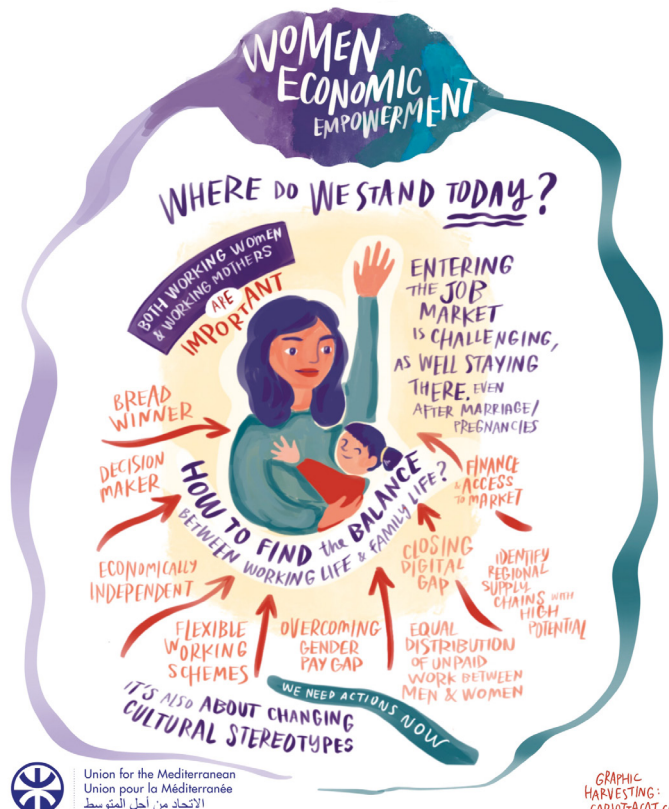 WOMEN
ECONOMIC
EMPOWERMENT
WHERE DO WE STAND TODAY?
BOTH WORKING WOMEN
& WORKING MOTHERS
ARE
IMPORTANT
ENTERING
THE JOB
MARKET
IS CHALLENGING,
AS WELL STAYING
THERE. EVEN
AFTER MARRIAGE/
PREGNANCIES
BREAD
WINNER
DECISION
MAKER
ECONOMICALLY
INDEPENDENT
HOW TO FIND the BALANCE
BETWEEN WORKING LIFE & FAMILY LIFE?
FINANCE
& ACCESS
TO MARKET
CLOSING
DIGITAL
GAP
IDENTIFY
REGIONAL
SUPPLY
CHAINS WITH
HIGH
POTENTIAL
FLEXIBLE
WORKING
SCHEMES
OVERCOMING
GENDER
PAY GAP
EQUAL
DISTRIBUTION
OF UNPAID
WORK BETWEEN
MEN & WOMEN
IT'S ALSO ABOUT CHANGING
CULTURAL STEREOTYPES
WE NEED ACTIONS NOW
Union for the Mediterranean
Union pour la Méditerranée
الاتحاد من أجل المتوسط
GRAPHIC
HARVESTING: